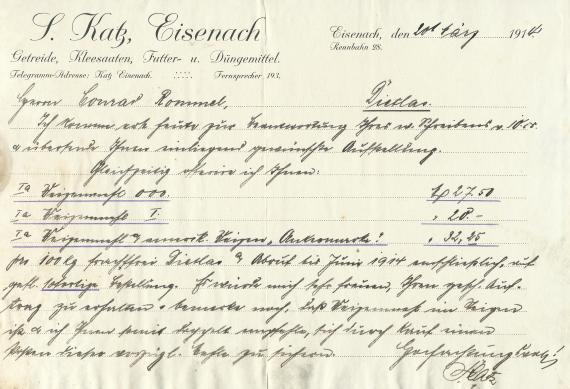 S. Katz, Eisenach
Getreide, Kleesaaten, Futter- u. Düngemittel.
Telegramm-Adresse: Katz Eisenach. Fernsprecher 193.
Eisenach, den 20t März 1914
Rennbahn 28.
Herrn Conrad Rommel, Dietlas.
Ich komme erst heute zur Beantwortung Ihres w. Schreibens v. 10. cr.
& übersende Ihnen einliegend gewünschte Aufstellung.
Gleichzeitig offerire ich Ihnen:
Ia Weizenmehl 000. 27.50
Ia Weizenmehl I. " 28.-
Ia Weizenmehl a amerik. Weizen " " 32,25
per 100 kg frachtfrei Dietlas & Abruf bis Juni 1914 einschließlich, auf
gefl. sofortige Bestellung. Es würde mich sehr freuen, Ihren gesch. Auf-
trag zu erhalten & bemerke noch, daß Weizenmehl im Steigen
ist & ich Ihnen somit doppelt empfehle, sich durch Kauf einen
Posten dieser vorzügl. Mehle zu sichern. Hochachtungsvoll!
S. Katz